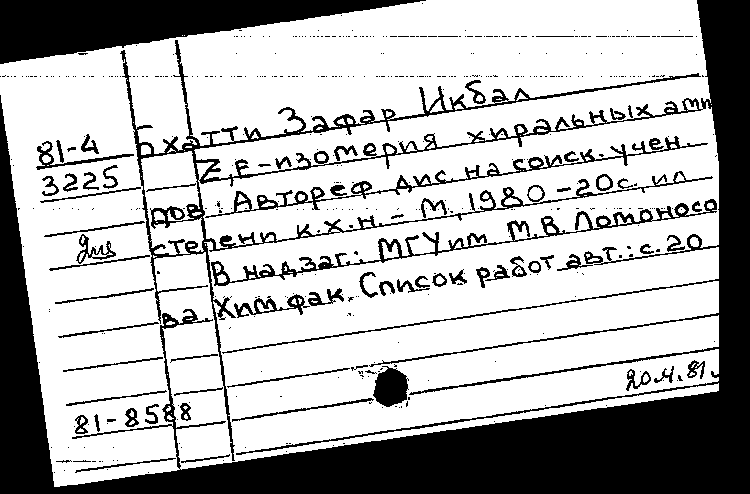 81-4 Бхатти Зафар Икбал
3225 Z,E-изомерия хиральных ами
дов: Автореф. дис. на соиск. учен.
степени к.х.н. - М., 1980 - 20с., ил
В надзаг.: МГУ им М.В. Ломоносо
ва. Хим. фак. Список работ авт.: с. 20
81-8588
20.4.81.